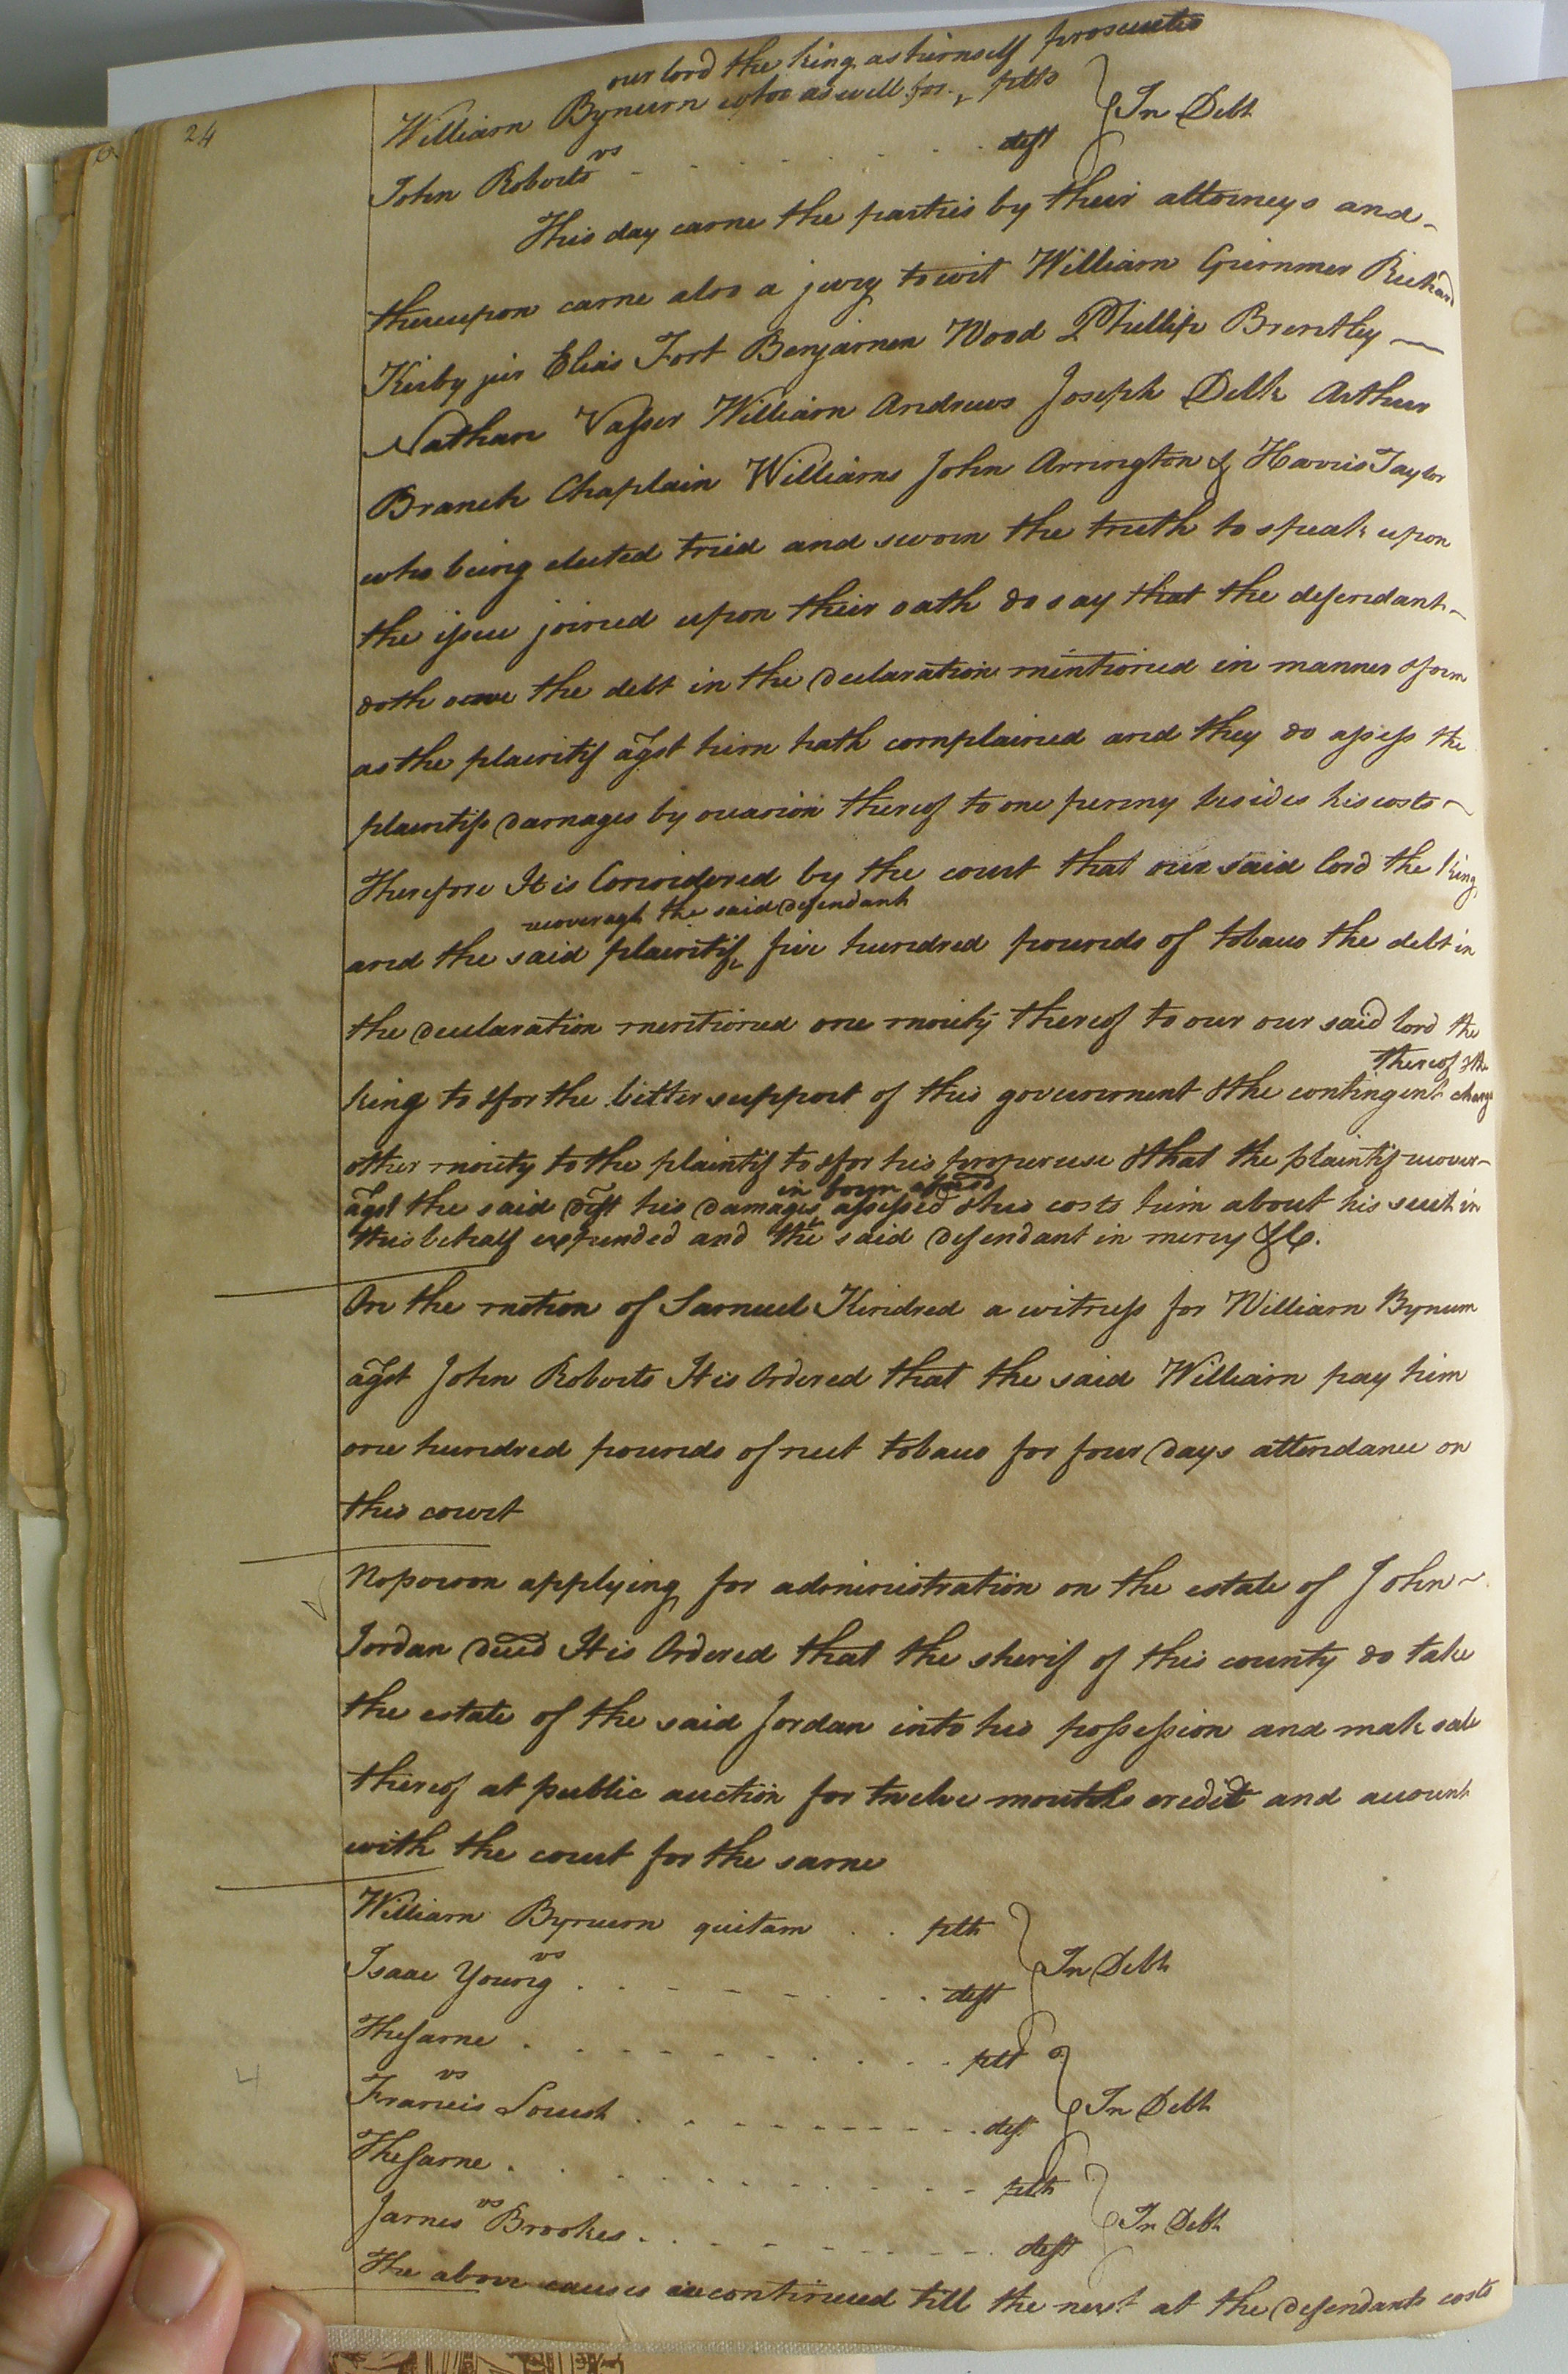 24
our lord the king as himself prosecutes
William Bynum who as well for ‸ plts
vs
In Debt
John Roberts deft
This day came the parties by their attorneys and
thereupon came also a jury towit William Grimmer Richard
Kirby junr Elias Fort Benjamen Wood Phillip Brentley
Nathan Vasser William Andrews Joseph Delk Arthur
Branch Chaplain Williams John Arrington & Harris Taylor
who being elected tried and sworn the truth to speak upon
the issue joined upon their oath do say that the defendant
doth owe the debt in the declaration mentioned in manner & form
as the plaintif agst him hath complained and they do assess the
plaintifs damages by occasion thereof to one penny besides his costs
Therefore It is Considered by the court that our said lord the king
recover agst the said defendant
and the said plaintif ‸ five hundred pounds of tobaco the debt in
the declaration mentioned one moiety thereof to our our said lord the
thereof & the
king to & for the better support of this government & the contingent charge
other moiety to the plaintif to & for his proper use & that the plaintif recover
in form aforesd
agst the said deft his damages ‸ assessed & his costs him about his suit in
this behalf expended and the said defendant in mercy &c.
On the motion of Samuel Kindred a witness for William Bynum
agst John Roberts It is Ordered that the said William pay him
one hundred pounds of neet tobaco for four days attendance on
this court
No person applying for administration on the estate of John
Jordan deced It is Ordered that the sherif of this county do take
the estate of the said Jordan into his possession and make sale
thereof at public auction for twelve months credit and account
with the court for the same
William Bynum quitam plt
vs
In Debt
Isaac Young deft
The same plt
vs
In Debt
Francis deft
4
The same plt
vs
In Debt
James Brookes deft
The above causes are continued till the next at the defendants costs